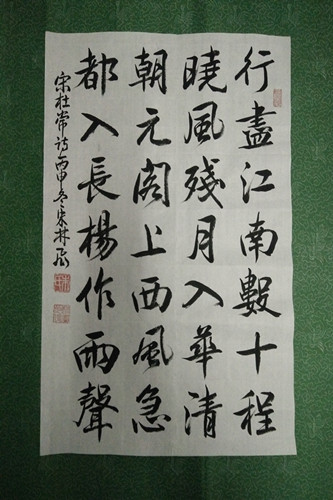 行盡江南數十程
曉風殘月入華清
朝元閣上西風急
都入長楊作雨聲
宋杜常詩丙申冬宋林